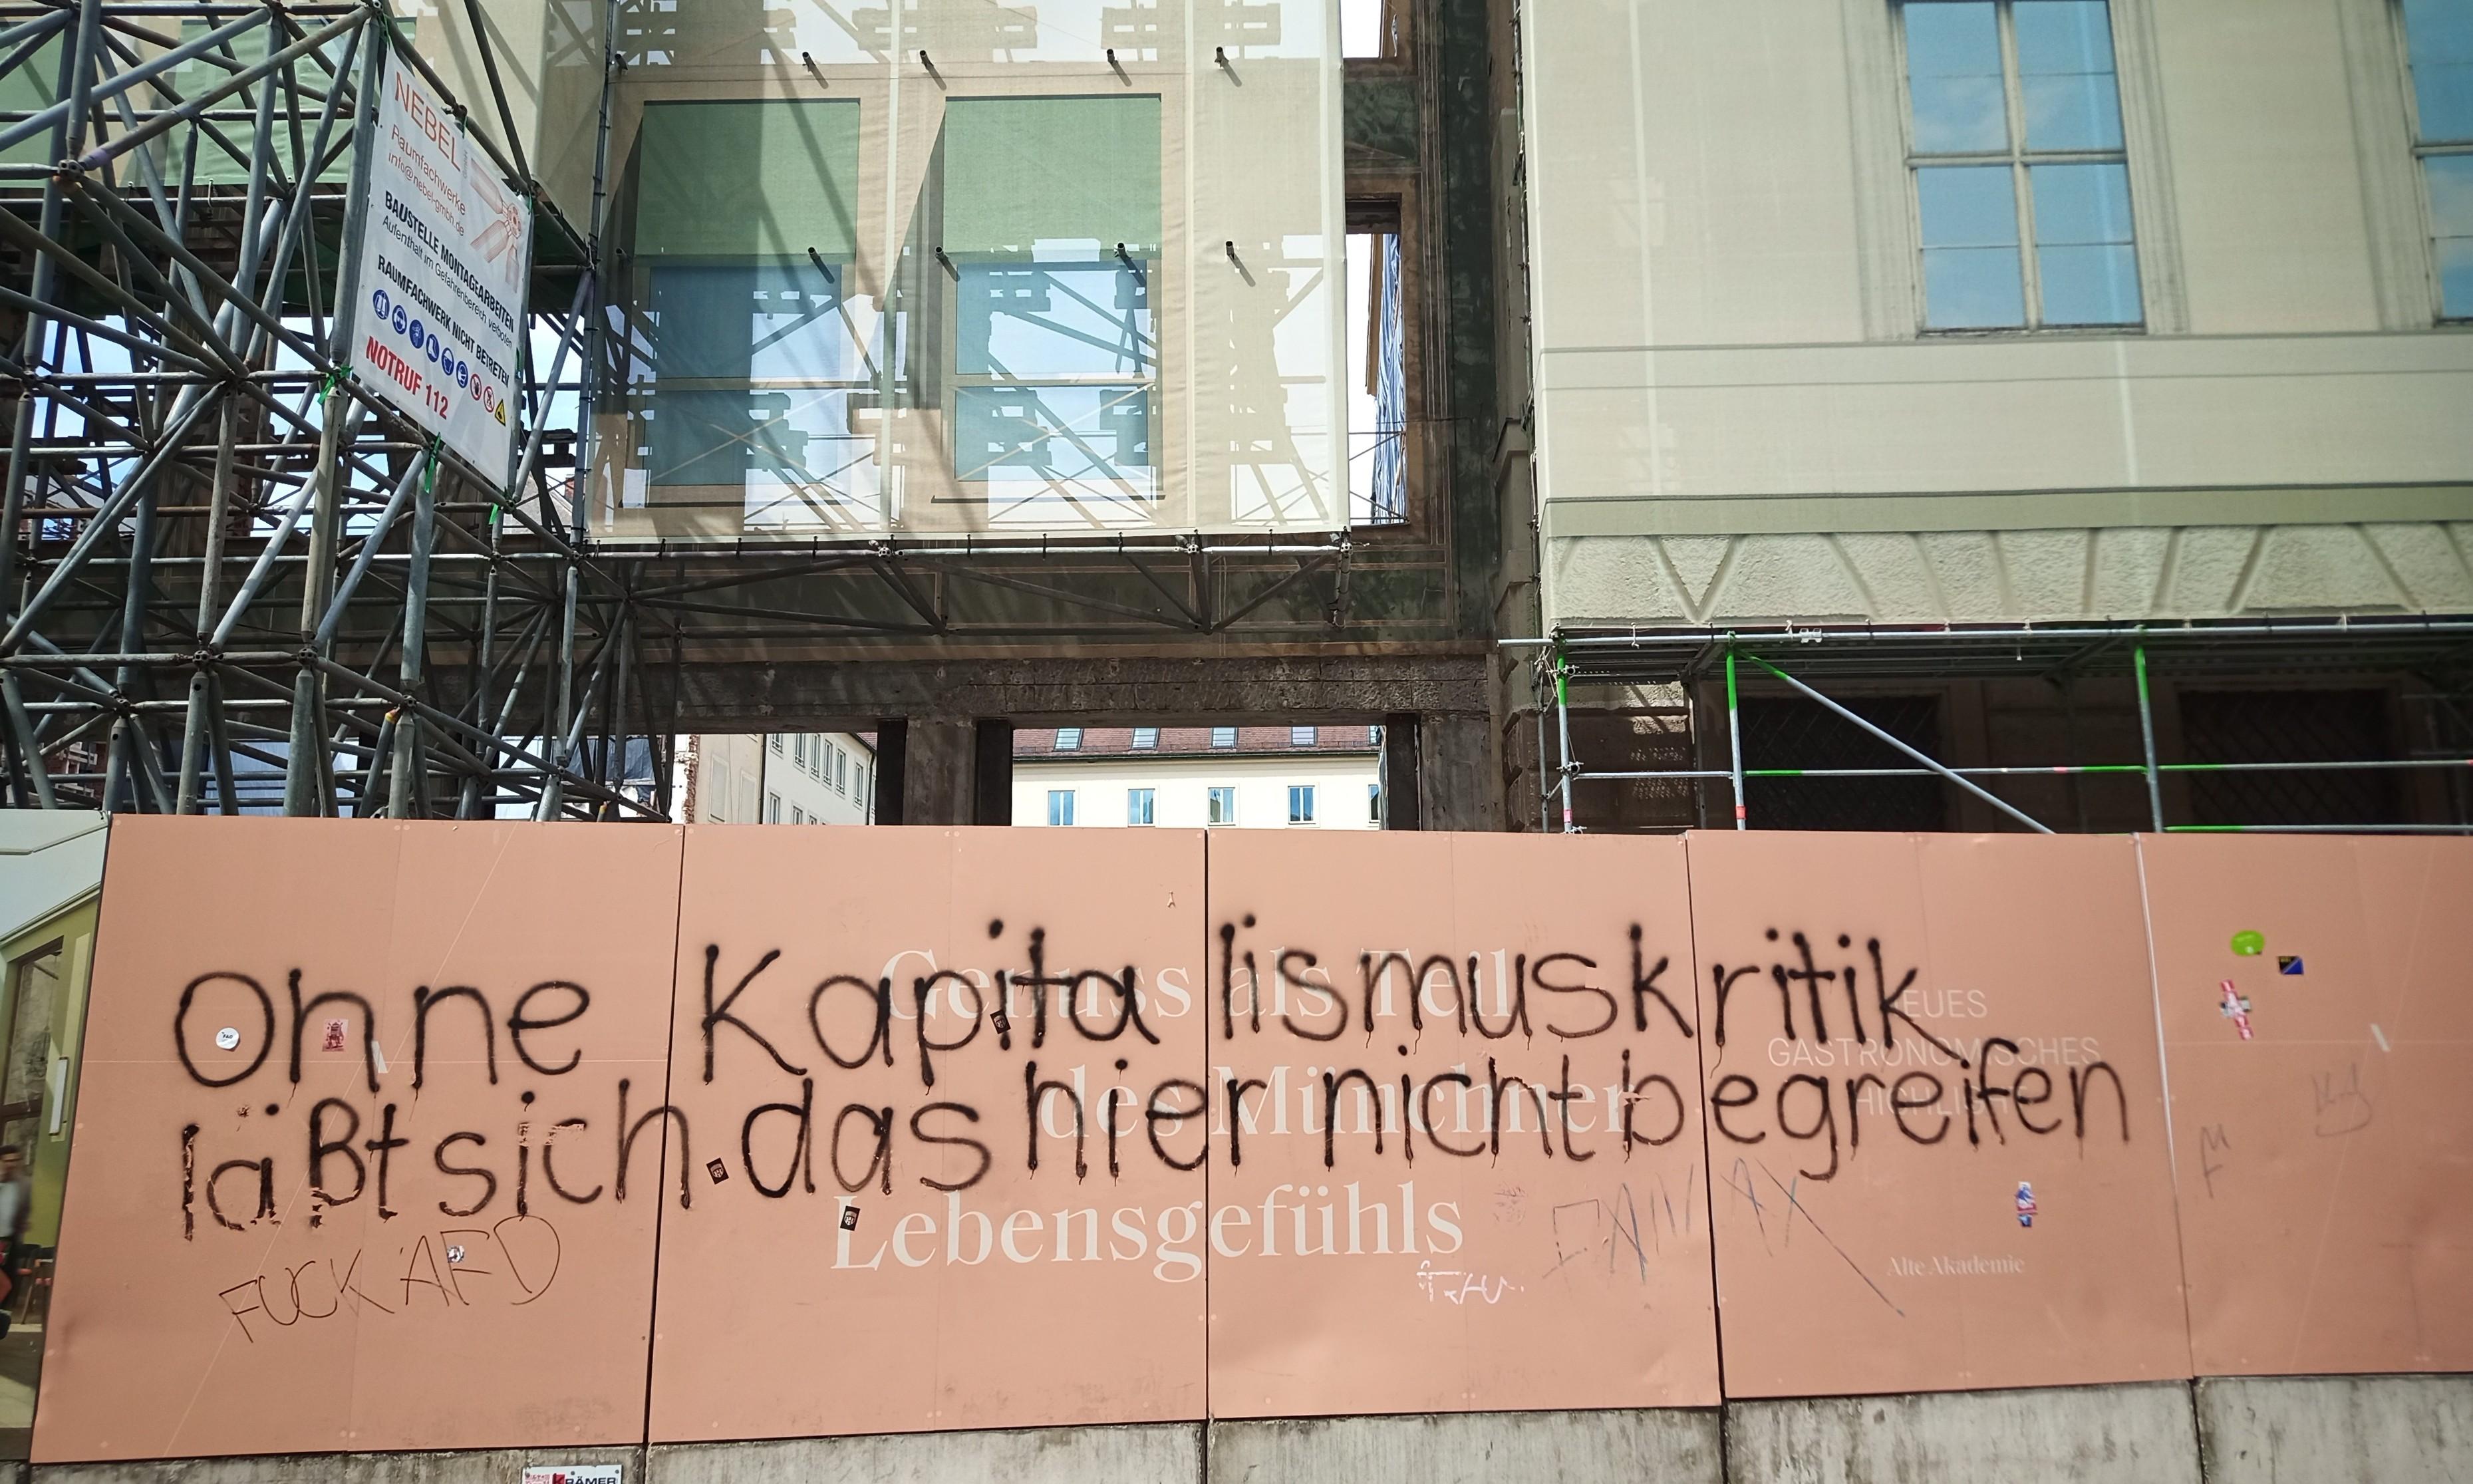 NEBEL
Raumfachwerke
info@nebel-gmbh.de
BAUSTELLE MONTAGEARBEITEN
Aufenthalt im Gefahrenbereich verboten
RAUMFACHWERK NICHT BETRETEN
NOTRUF 112
Ohne Kapitalismuskritik
läßt sich das hier nicht begreifen
FUCK AFD
Genuss als Teil
des Münchner
Lebensgefühls
NEUES
GASTRONOMISCHES
HIGHLIGHT
Alte Akademie
KRÄMER